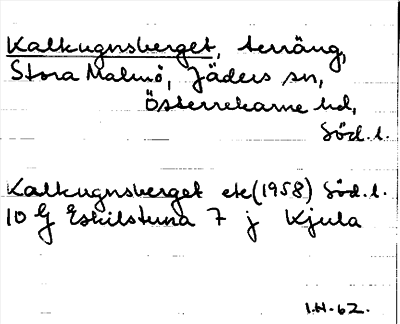 Kalkugnsberget, terräng,
Stora Malmö, Jäders sn,
Österrekarne hd,
Söd.l.
Kalkugnsberget ek (1958) Söd.l.
10 G Eskilstuna 7 j Kjula
I.H-62.